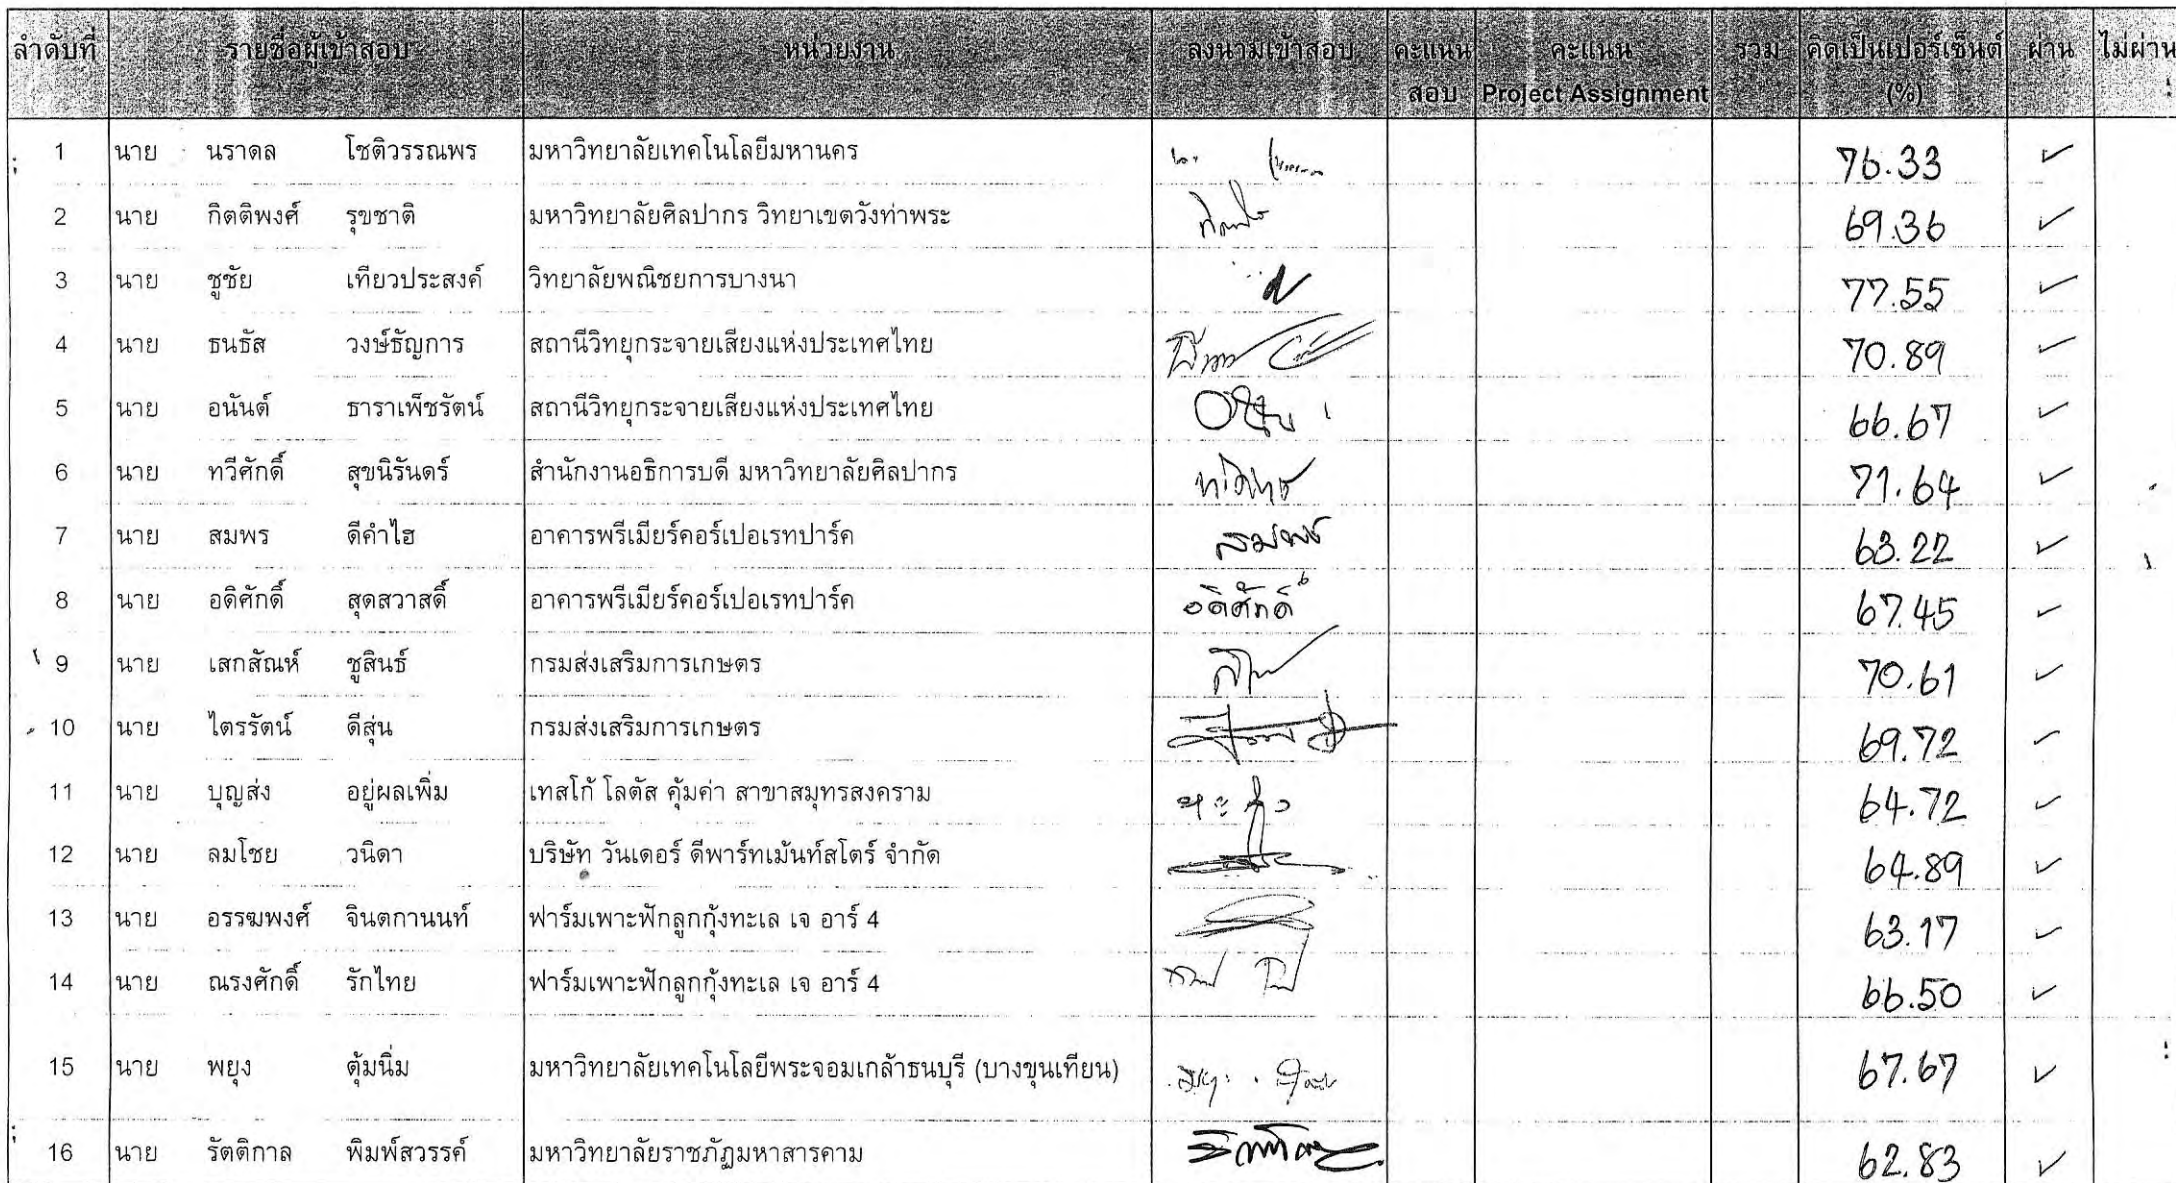 ลำดับที่ รายชื่อผู้เข้าสอบ หน่วยงาน ลงนามเข้าสอบ คะแนน คะแนน รวม คิดเป็นเปอร์เซ็นต์ ผ่าน ไม่ผ่าน
สอบ Project Assignment (%)
1 นาย นราดล โชติวรรณพร มหาวิทยาลัยเทคโนโลยีมหานคร 76.33 ✓
2 นาย กิตติพงศ์ รุขชาติ มหาวิทยาลัยศิลปากร วิทยาเขตวังท่าพระ 69.36 ✓
3 นาย ชูชัย เทียวประสงค์ วิทยาลัยพณิชยการบางนา 77.55 ✓
4 นาย ธนธัส วงษ์ธัญการ สถานีวิทยุกระจายเสียงแห่งประเทศไทย 70.89 ✓
5 นาย อนันต์ ธาราเพ็ชรัตน์ สถานีวิทยุกระจายเสียงแห่งประเทศไทย 66.67 ✓
6 นาย ทวีศักดิ์ สุขนิรันดร์ สำนักงานอธิการบดี มหาวิทยาลัยศิลปากร 71.64 ✓
7 นาย สมพร ดีคำไฮ อาคารพรีเมียร์คอร์เปอเรทปาร์ค สมพร 63.22 ✓
8 นาย อดิศักดิ์ สุดสวาสดิ์ อาคารพรีเมียร์คอร์เปอเรทปาร์ค อดิศักดิ์ 67.45 ✓
9 นาย เสกสัณห์ ชูสินธ์ กรมส่งเสริมการเกษตร 70.61 ✓
10 นาย ไตรรัตน์ ดีสุ่น กรมส่งเสริมการเกษตร 69.72 ✓
11 นาย บุญส่ง อยู่ผลเพิ่ม เทสโก้ โลตัส คุ้มค่า สาขาสมุทรสงคราม 64.72 ✓
12 นาย ลมโชย วนิดา บริษัท วันเดอร์ ดีพาร์ทเม้นท์สโตร์ จำกัด 64.89 ✓
13 นาย อรรฆพงศ์ จินตกานนท์ ฟาร์มเพาะฟักลูกกุ้งทะเล เจ อาร์ 4 63.17 ✓
14 นาย ณรงศักดิ์ รักไทย ฟาร์มเพาะฟักลูกกุ้งทะเล เจ อาร์ 4 66.50 ✓
15 นาย พยุง ตุ้มนิ่ม มหาวิทยาลัยเทคโนโลยีพระจอมเกล้าธนบุรี (บางขุนเทียน) 67.67 ✓
16 นาย รัตติกาล พิมพ์สวรรค์ มหาวิทยาลัยราชภัฏมหาสารคาม 62.83 ✓